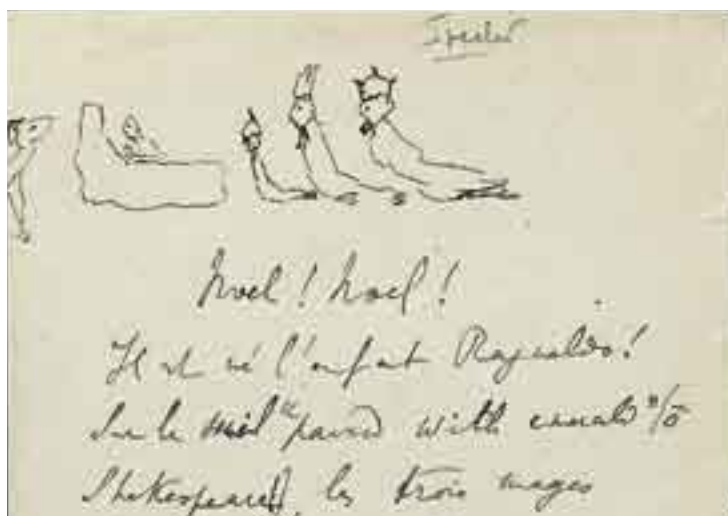 Noel ! Noel !
Il est né l'enfant Reynaldo !
Sur le "paved with emerald"
Shakespeare), les trois mages